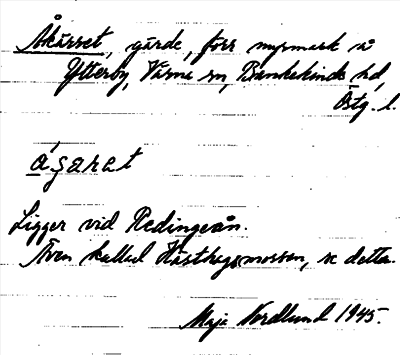 Åkärret, gärde, förr myrmark på
Ytterby, Värne sn, Bankekinds hd,
Östg. l.
åsaret
Ligger vid Redingeån.
Även kallad Hästhagsmossen, se detta.
Maja Nordlund 1945.